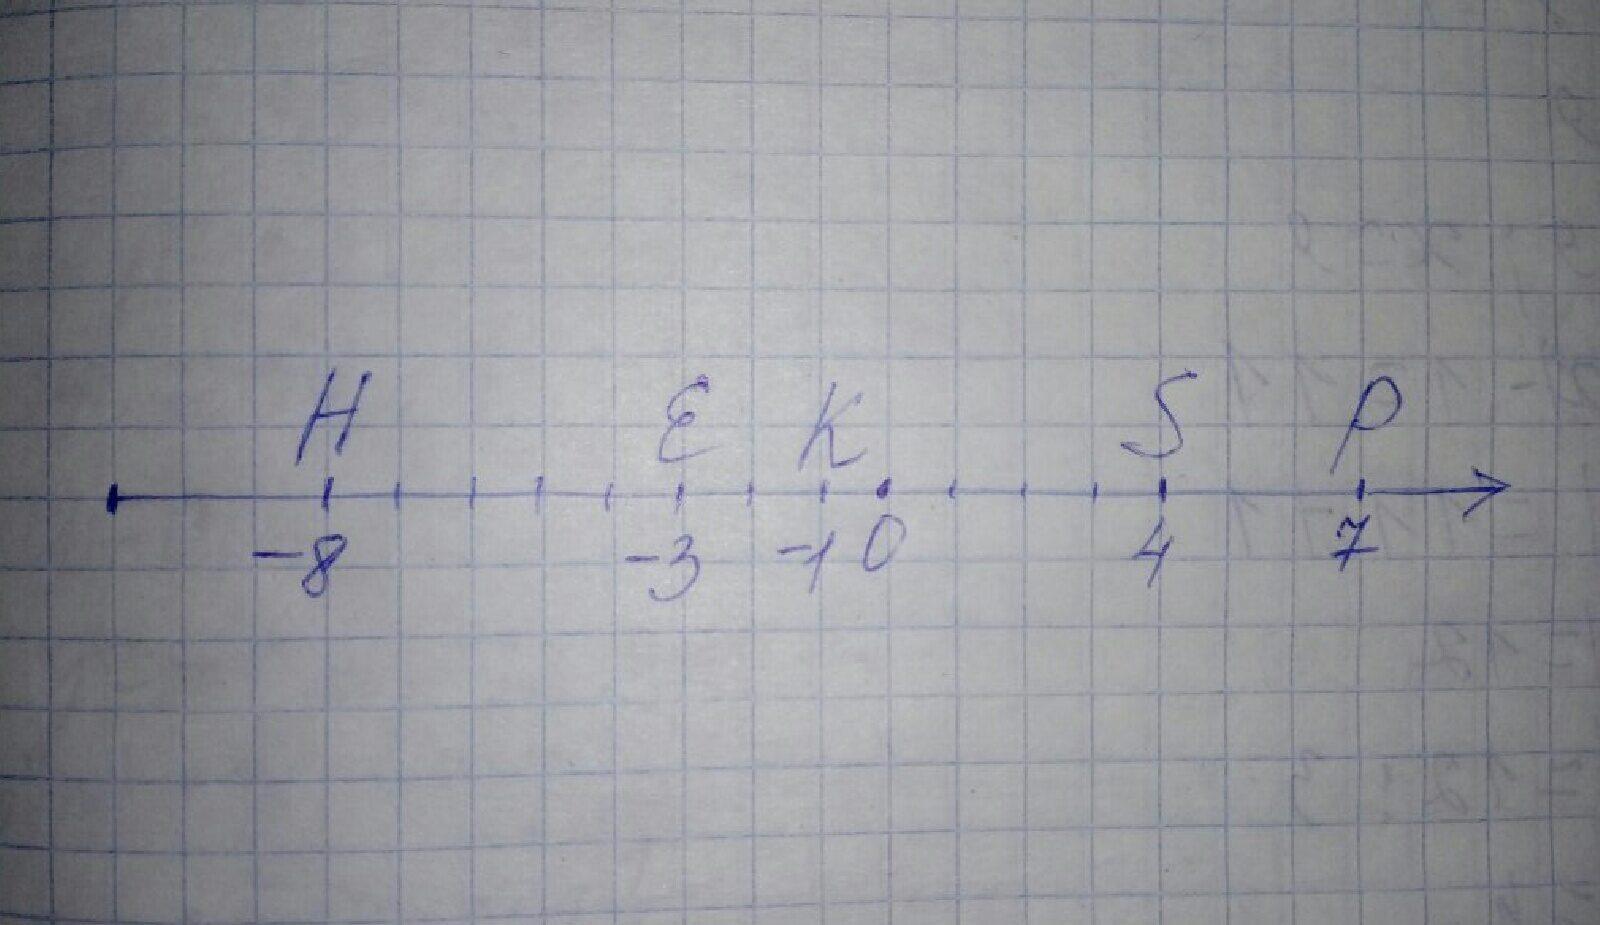 H E K S P
-8 -3 -1 0 4 7